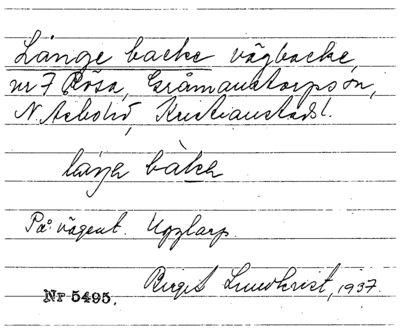 Långe backe vägbacke,
nr 7 Rösa, Gråmanstorps sn,
N. Åsbo hd, Kristianstads l.
På vägen t.
Birgit Lundkvist, 1937.
Nr 5495.